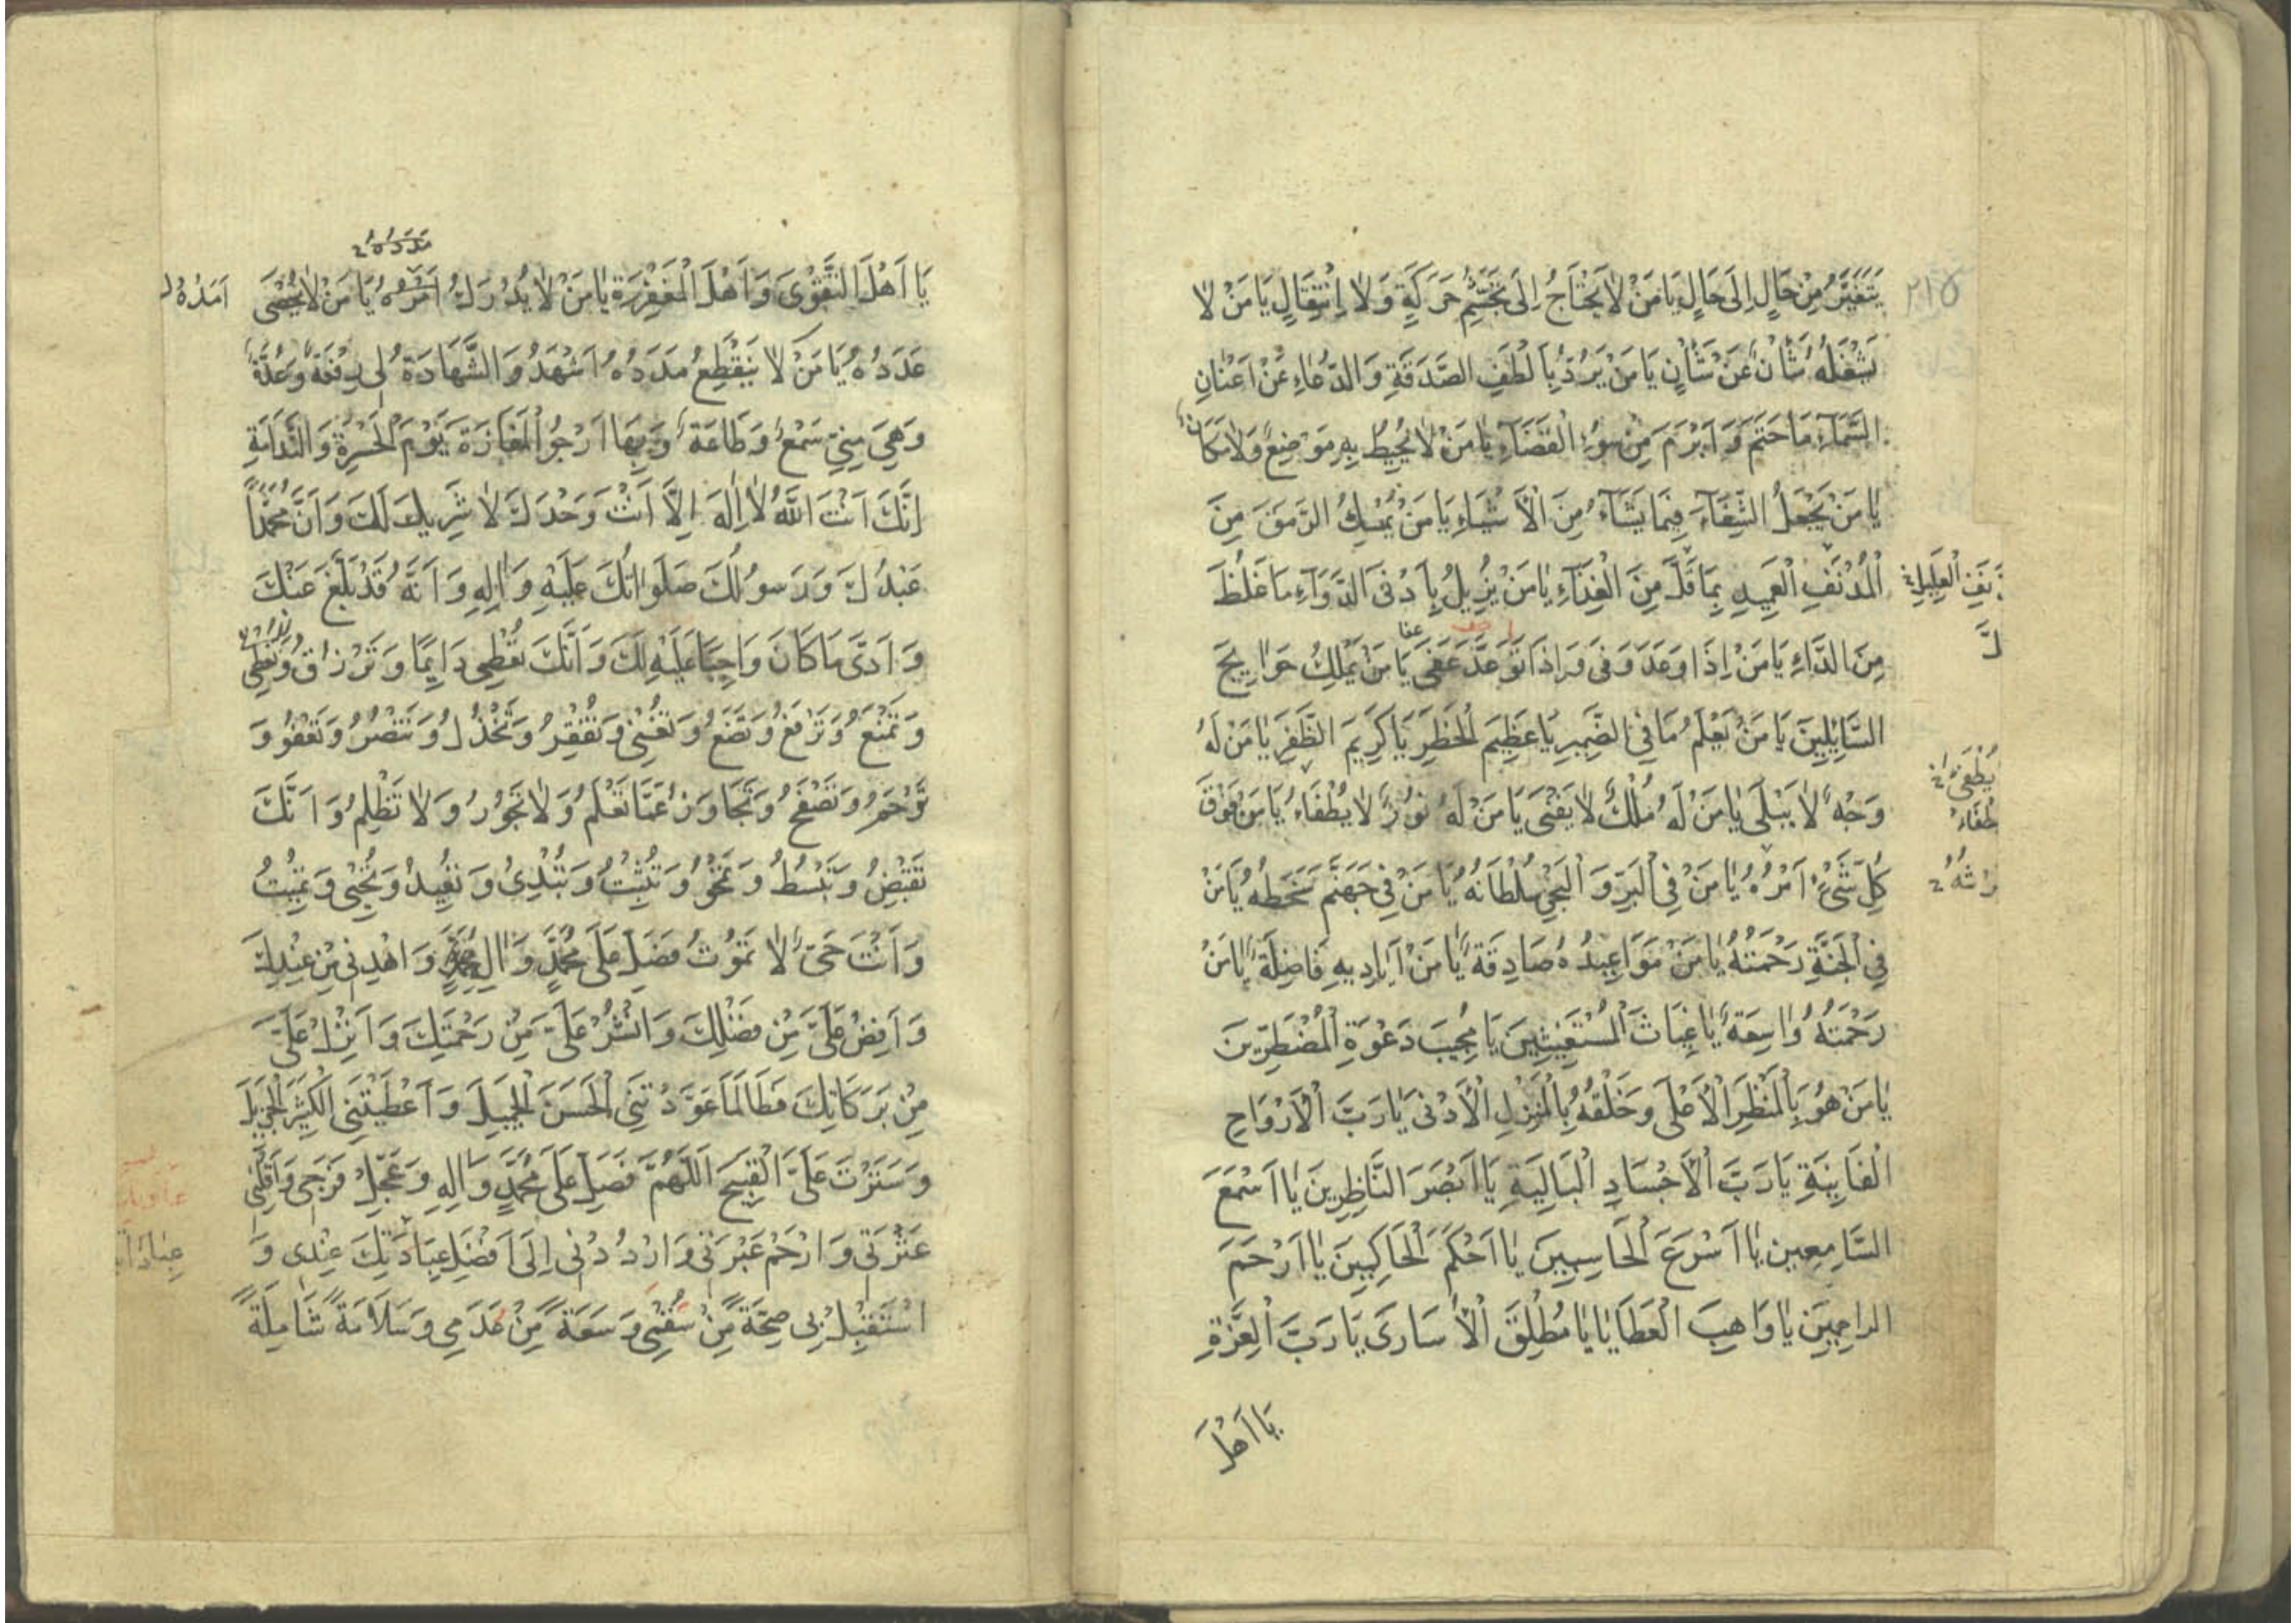 ٢١٥
يَتَغَيَّرُ مِنْ حَالٍ اِلَى حَالٍ يَا مَنْ لاٰ يَحْتَاجُ اِلَى تَجَشُّمِ حَرَكَةٍ وَلاٰ اِنْتِقَالٍ يَا مَنْ لاٰ
يَشْغَلُهُ شَأْنٌ عَنْ شَأْنٍ يَا مَنْ يَرُدُّ بِاَلْطَفِ الصَّدَقَةِ وَالدُّعَاءِ عَنْ اَعْنَانِ
السَّمَآءِ مَا حَتَمَ وَ اَبْرَمَ مِنْ سُوءِ الْقَضَآءِ يَا مَنْ لاٰ يُحِيطُ بِهِ مَوْضِعٌ وَلاٰ مَكَانٌ
يَا مَنْ يَجْعَلُ الشِّفَآءَ فِيمَا يَشَآءُ مِنَ الْاَشْيَاءِ يَا مَنْ يُمْسِكُ الرَّمَقَ مِنَ
الْمُدْنَفِ الْعَمِيدِ بِمَا قَلَّ مِنَ الْغِذَآءِ يَا مَنْ يُزِيلُ بِاَدْنَى الدَّوَآءِ مَا غَلُظَ
نَفِ الْعَلِيلِ
عفا
مِنَ الدَّآءِ يَا مَنْ اِذَا وَعَدَ وَفَى وَ اِذَا تَوَعَّدَ عَفَى يَا مَنْ يَمْلِكُ حَوَايِجَ
السَّايِلِينَ يَا مَنْ يَعْلَمُ مَا فِي الضَّمِيرِ يَا عَظِيمَ الْخَطَرِ يَا كَرِيمَ الظَّفَرِ يَا مَنْ لَهُ
وَجْهٌ لاٰ يَبْلَى يَا مَنْ لَهُ مُلْكٌ لاٰ يَفْنَى يَا مَنْ لَهُ نُورٌ لاٰ يُطْفَاءُ يَا مَنْ فَوْقَ
يُطْفَى
كُلِّ شَىْءٍ اَمْرُهُ يَا مَنْ فِي الْبَرِّ وَ الْبَحْرِ سُلْطَانُهُ يَا مَنْ فِي جَهَنَّمَ سَخَطُهُ يَا مَنْ
فِي الْجَنَّةِ رَحْمَتُهُ يَا مَنْ مَوَاعِيدُهُ صَادِقَةٌ يَا مَنْ اَيَادِيهِ فَاضِلَةٌ يَا مَنْ
رَحْمَتُهُ وَاسِعَةٌ يَا غِيَاثَ الْمُسْتَغِيثِينَ يَا مُجِيبَ دَعْوَةِ الْمُضْطَرِّينَ
يَا مَنْ هُوَ بِالْمَنْظَرِ الْاَعْلَى وَ خَلْقُهُ بِالْمَنْزِلِ الْاَدْنَى يَا رَبَّ الْاَرْوَاحِ
الْفَانِيَةِ يَا رَبَّ الْاَجْسَادِ الْبَالِيَةِ يَا اَبْصَرَ النَّاظِرِينَ يَا اَسْمَعَ
السَّامِعِينَ يَا اَسْرَعَ الْحَاسِبِينَ يَا اَحْكَمَ الْحَاكِمِينَ يَا اَرْحَمَ
الرَّاحِمِينَ يَا وَاهِبَ الْعَطَايَا يَا مُطْلِقَ الْاُسَارَى يَا رَبَّ الْعِزَّةِ
يَا اَهْلَ
مَدَدُهُ
يَا اَهْلَ التَّقْوَى وَ اَهْلَ الْمَغْفِرَةِ يَا مَنْ لاٰ يُدْرَكُ اَمْرُهُ يَا مَنْ لاٰ يُحْصَى
اَمَدُهُ
عَدَدُهُ يَا مَنْ لاٰ يَنْقَطِعُ مَدَدُهُ اَشْهَدُ وَ الشَّهَادَةُ لِي رِفْعَةٌ وَ عُدَّةٌ
وَ هِيَ مِنِّي سَمْعٌ وَ طَاعَةٌ وَ بِهَا اَرْجُو الْمَفَازَةَ يَوْمَ الْحَسْرَةِ وَ النَّدَامَةِ
اِنَّكَ اَنْتَ اللّٰهُ لاٰ اِلٰهَ اِلَّا اَنْتَ وَحْدَكَ لاٰ شَرِيكَ لَكَ وَ اَنَّ مُحَمَّداً
عَبْدُكَ وَ رَسُولُكَ صَلَوَاتُكَ عَلَيْهِ وَ اٰلِهِ وَ اَنَّهُ قَدْ بَلَّغَ عَنْكَ
وَ اَدَّى مَا كَانَ وَاجِبًا عَلَيْهِ لَكَ وَ اَنَّكَ تُعْطِي دَايِمًا وَ تَرْزُقُ وَ تُعْطِي
وَ تَمْنَعُ وَ تَرْفَعُ وَ تَضَعُ وَ تُغْنِي وَ تُفْقِرُ وَ تَخْذُلُ وَ تَنْصُرُ وَ تَعْفُو وَ
تَرْحَمُ وَ تَصْفَحُ وَ تَجَاوَزُ عَمَّا تَعْلَمُ وَ لاٰ تَجُورُ وَ لاٰ تَظْلِمُ وَ اَنَّكَ
تَقْبِضُ وَ تَبْسُطُ وَ تَمْحُو وَ تُثْبِتُ وَ تُبْدِئُ وَ تُعِيدُ وَ تُحْيِي وَ تُمِيتُ
وَ اَنْتَ حَيٌّ لاٰ تَمُوتُ فَصَلِّ عَلَى مُحَمَّدٍ وَ اٰلِ مُحَمَّدٍ وَ اهْدِنِي مِنْ عِنْدِكَ
وَ اَفِضْ عَلَيَّ مِنْ فَضْلِكَ وَ انْشُرْ عَلَيَّ مِنْ رَحْمَتِكَ وَ اَنْزِلْ عَلَيَّ
مِنْ بَرَكَاتِكَ فَطَالَمَا عَوَّدْتَنِي الْحَسَنَ الْجَمِيلَ وَ اَعْطَيْتَنِي الْكَثِيرَ الْجَزِيلَ
وَ سَتَرْتَ عَلَيَّ الْقَبِيحَ اَللّٰهُمَّ فَصَلِّ عَلَى مُحَمَّدٍ وَ اٰلِهِ وَ عَجِّلْ فَرَجِي وَ اَقِلْنِي
عَثْرَتِي وَ ارْحَمْ عَبْرَتِي وَ ارْدُدْنِي اِلَى اَفْضَلِ عِبَادَتِكَ عِنْدِي وَ
اسْتَقْبِلْ بِي صِحَّةً مِنْ سُقْمِي وَ سَعَةً مِنْ عَدَمِي وَ سَلَامَةً شَامِلَةً